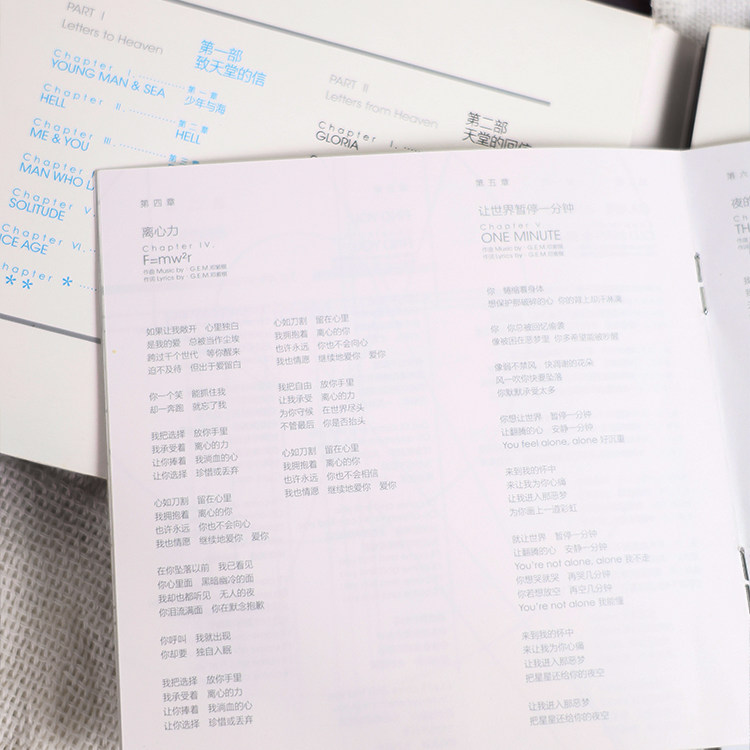 PART I
Letters to Heaven
第一部
致天堂的信
Chapter I.
YOUNG MAN & SEA
第一章
少年与海
Chapter II.
HELL
第二章
HELL
Chapter III.
ME & YOU
第三章
MAN WHO
Chapter V.
SOLITUDE
Chapter VI.
ICE AGE
Chapter *
***
PART II
Letters from Heaven
第二部
天堂的回信
Chapter I.
GLORIA
第四章
离心力
Chapter IV.
F=mw²r
作曲 Music by : G.E.M.邓紫棋
作词 Lyrics by : G.E.M.邓紫棋
如果让我敞开 心里独白
是我的爱 总被当作尘埃
跨过千个世代 等你醒来
迫不及待 但出于爱留白
你一个笑 能抓住我
却一奔跑 就忘了我
我把选择 放你手里
我承受着 离心的力
让你捧着 我淌血的心
让你选择 珍惜或丢弃
心如刀割 留在心里
我拥抱着 离心的你
也许永远 你也不会向心
我也情愿 继续地爱你 爱你
在你坠落以前 我已看见
你心里面 黑暗幽冷的面
我却也都听见 无人的夜
你泪流满面 你在默念抱歉
你呼叫 我就出现
你却要 独自入眠
我把选择 放你手里
我承受着 离心的力
让你捧着 我淌血的心
让你选择 珍惜或丢弃
心如刀割 留在心里
我拥抱着 离心的你
也许永远 你也不会向心
我也情愿 继续地爱你 爱你
我把自由 放你手里
让我承受 离心的力
为你守候 在世界尽头
不管最后 你是否抬头
心如刀割 留在心里
我拥抱着 离心的你
也许永远 你也不会相信
我也情愿 继续地爱你 爱你
第五章
让世界暂停一分钟
Chapter V.
ONE MINUTE
作曲 Music by : G.E.M.邓紫棋
作词 Lyrics by : G.E.M.邓紫棋
你 蜷缩着身体
想保护那破碎的心 你的背上却汗淋漓
你 你总被回忆偷袭
像被困在恶梦里 你多希望能被吵醒
像弱不禁风 快凋谢的花朵
风一吹你快要坠落
你默默承受太多
你想让世界 暂停一分钟
让翻腾的心 安静一分钟
You feel alone, alone 好沉重
来到我的怀中
来让我为你心痛
让我进入那恶梦
为你画上一道彩虹
就让世界 暂停一分钟
让翻腾的心 安静一分钟
You're not alone, alone
你想哭就哭 再哭几分钟
你若想放空 再空几分钟
You're not alone 我能懂
来到我的怀中
来让我为你心痛
让我进入那恶梦
把星星还给你的夜空
让我进入那恶梦
把星星还给你的夜空
第六
夜的